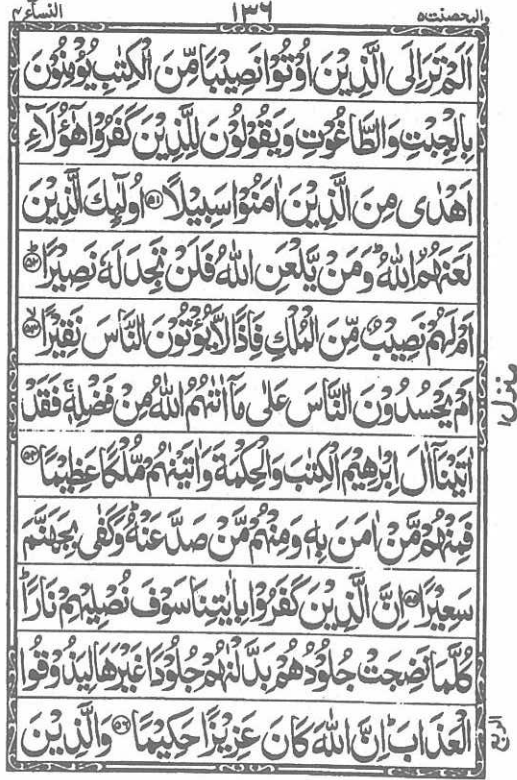 والمحصنت ٥ ١٣٦ النساء ٤
اَلَمْ تَرَ اِلَى الَّذِيْنَ اُوْتُوْا نَصِيْبًا مِّنَ الْكِتٰبِ يُؤْمِنُوْنَ
بِالْجِبْتِ وَالطَّاغُوْتِ وَيَقُوْلُوْنَ لِلَّذِيْنَ كَفَرُوْا هٰٓؤُلَآءِ
اَهْدٰى مِنَ الَّذِيْنَ اٰمَنُوْا سَبِيْلًا ﴿٥١﴾ اُولٰٓئِكَ الَّذِيْنَ
لَعَنَهُمُ اللّٰهُ ؕ وَمَنْ يَّلْعَنِ اللّٰهُ فَلَنْ تَجِدَ لَهٗ نَصِيْرًا ؕ ﴿٥٢﴾
اَمْ لَهُمْ نَصِيْبٌ مِّنَ الْمُلْكِ فَاِذًا لَّا يُؤْتُوْنَ النَّاسَ نَقِيْرًا ۙ ﴿٥٣﴾
اَمْ يَحْسُدُوْنَ النَّاسَ عَلٰى مَآ اٰتٰىهُمُ اللّٰهُ مِنْ فَضْلِهٖ ۚ فَقَدْ
اٰتَيْنَآ اٰلَ اِبْرٰهِيْمَ الْكِتٰبَ وَالْحِكْمَةَ وَاٰتَيْنٰهُمْ مُّلْكًا عَظِيْمًا ﴿٥٤﴾
فَمِنْهُمْ مَّنْ اٰمَنَ بِهٖ وَمِنْهُمْ مَّنْ صَدَّ عَنْهُ ؕ وَكَفٰى بِجَهَنَّمَ
سَعِيْرًا ﴿٥٥﴾ اِنَّ الَّذِيْنَ كَفَرُوْا بِاٰيٰتِنَا سَوْفَ نُصْلِيْهِمْ نَارًا ؕ
كُلَّمَا نَضِجَتْ جُلُوْدُهُمْ بَدَّلْنٰهُمْ جُلُوْدًا غَيْرَهَا لِيَذُوْقُوا
الْعَذَابَ ؕ اِنَّ اللّٰهَ كَانَ عَزِيْزًا حَكِيْمًا ﴿٥٦﴾ وَالَّذِيْنَ
منزل ١
الربع